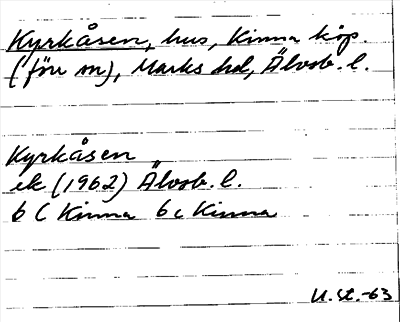 Kyrkåsen, hus, Kinna köp.
(för sn), Marks hd, Älvsb. l.
Kyrkåsen
ek (1962) Älvsb. l.
6 C Kinna 6 c Kinna
U. St. -63